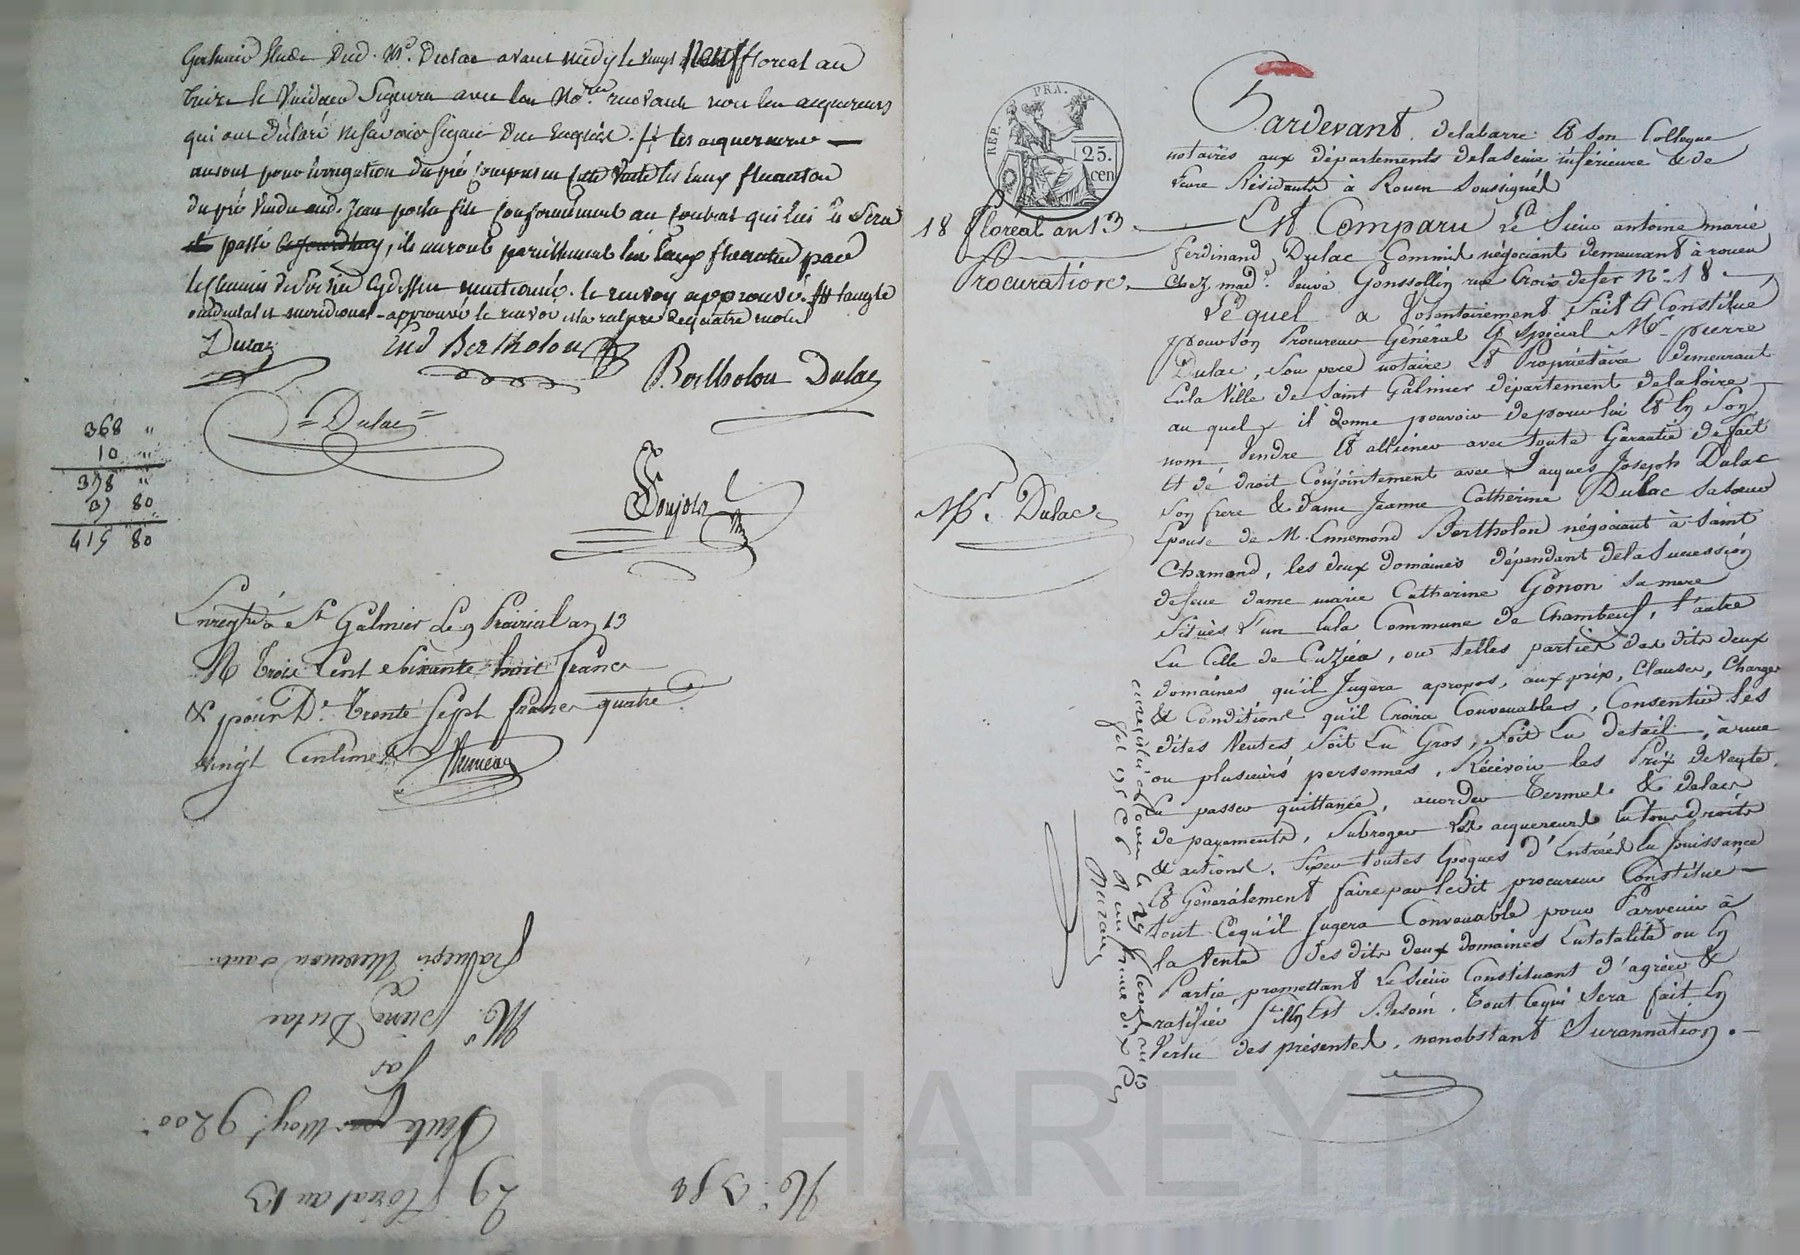 avant midy le vingt neuf floreal an
treize le vendeur signera avec les No.res recevants non les acquereurs
qui ont déclaré ne savoir signer de ce enquis. # les acquereurs
auront pour l'irrigation du pré compris en cette vente les eaux fluantes
du pré vendu aud. Jean conformément au contrat qui lui en sera
passé cejourdhuy, ils auront pareillement les eaux fluantes par
le chemin cydessus mentionné. le renvoy approuvé. # l'angle
occidental et meridional - approuvé le renvoi et la rature de quatre mots
Dulac
End Bertholon
Bertholon Dulac
= Dulac =
368 "
10 "
378 "
37 80
415 80
Goujon
Enregtré à St Galmier le 9 Prairial an 13
R Trois cent soixante huit francs
& pour De. trente sept francs quatre
vingt centimes
N°. 381
29 floréal an 13
Vente moy.t 9200
par
Mr. Pierre Dulac
à
REP. FRA.
25.
cen
18 floréal an 13
Procuration
Mr. Dulac
Pardevant Delabarre et son Collegue
notaires aux départements de la Seine inférieure & de
l'eure Résidants à Rouen Soussignés
Est Comparu Le Sieur antoine marie
ferdinand Dulac Commis négociant demeurant à rouen
chez mad.e Veuve Gonssollin rue Croix de fer N.° 18
Lequel a Volontairement fait et Constitué
pour son Procureur Général et spécial Mr. pierre
Dulac, son pere notaire et Propriétaire demeurant
en la Ville de Saint Galmier département de la loire
au quel il donne pouvoir de pour lui et en son
nom, Vendre et alliéner avec toute Garantie de fait
et de droit Conjointement avec Jacques Joseph Dulac
son frere & dame Jeanne Catherine Dulac sa soeur
Epouse de M. Ennemond Bertholon négociant à Saint
Chamond, les deux domaines dépendant de la Succession
de feue dame marie Catherine Gonon sa mere
Situés l'un en la Commune de Chambeuf, l'autre
en Celle de Cuzieu, ou telles parties des dits deux
domaines qu'il Jugera apropos, aux prix, Clauses, Charges
& Conditions qu'il Croira Convenables, Consentir les
dites Ventes Soit en Gros, Soit en détail, à une
ou plusieurs personnes, Recevoir les Prix de Vente
En passer quittance, accorder Termes & delais
de payements, Subroger les acquereurs en tous droits
& actions, fixer toutes époques d'Entrée en Jouissance
et Généralement faire par ledit procureur Constitué
tout Cequ'il Jugera Convenable pour Parvenir à
la Vente des dits deux domaines en totalité ou en
Partie, promettant le sieur Constituant d'agréer &
ratifier s'il en est Besoin, tout cequi sera fait en
Vertu des présentes, nonobstant Surannation.
CHAREYRON